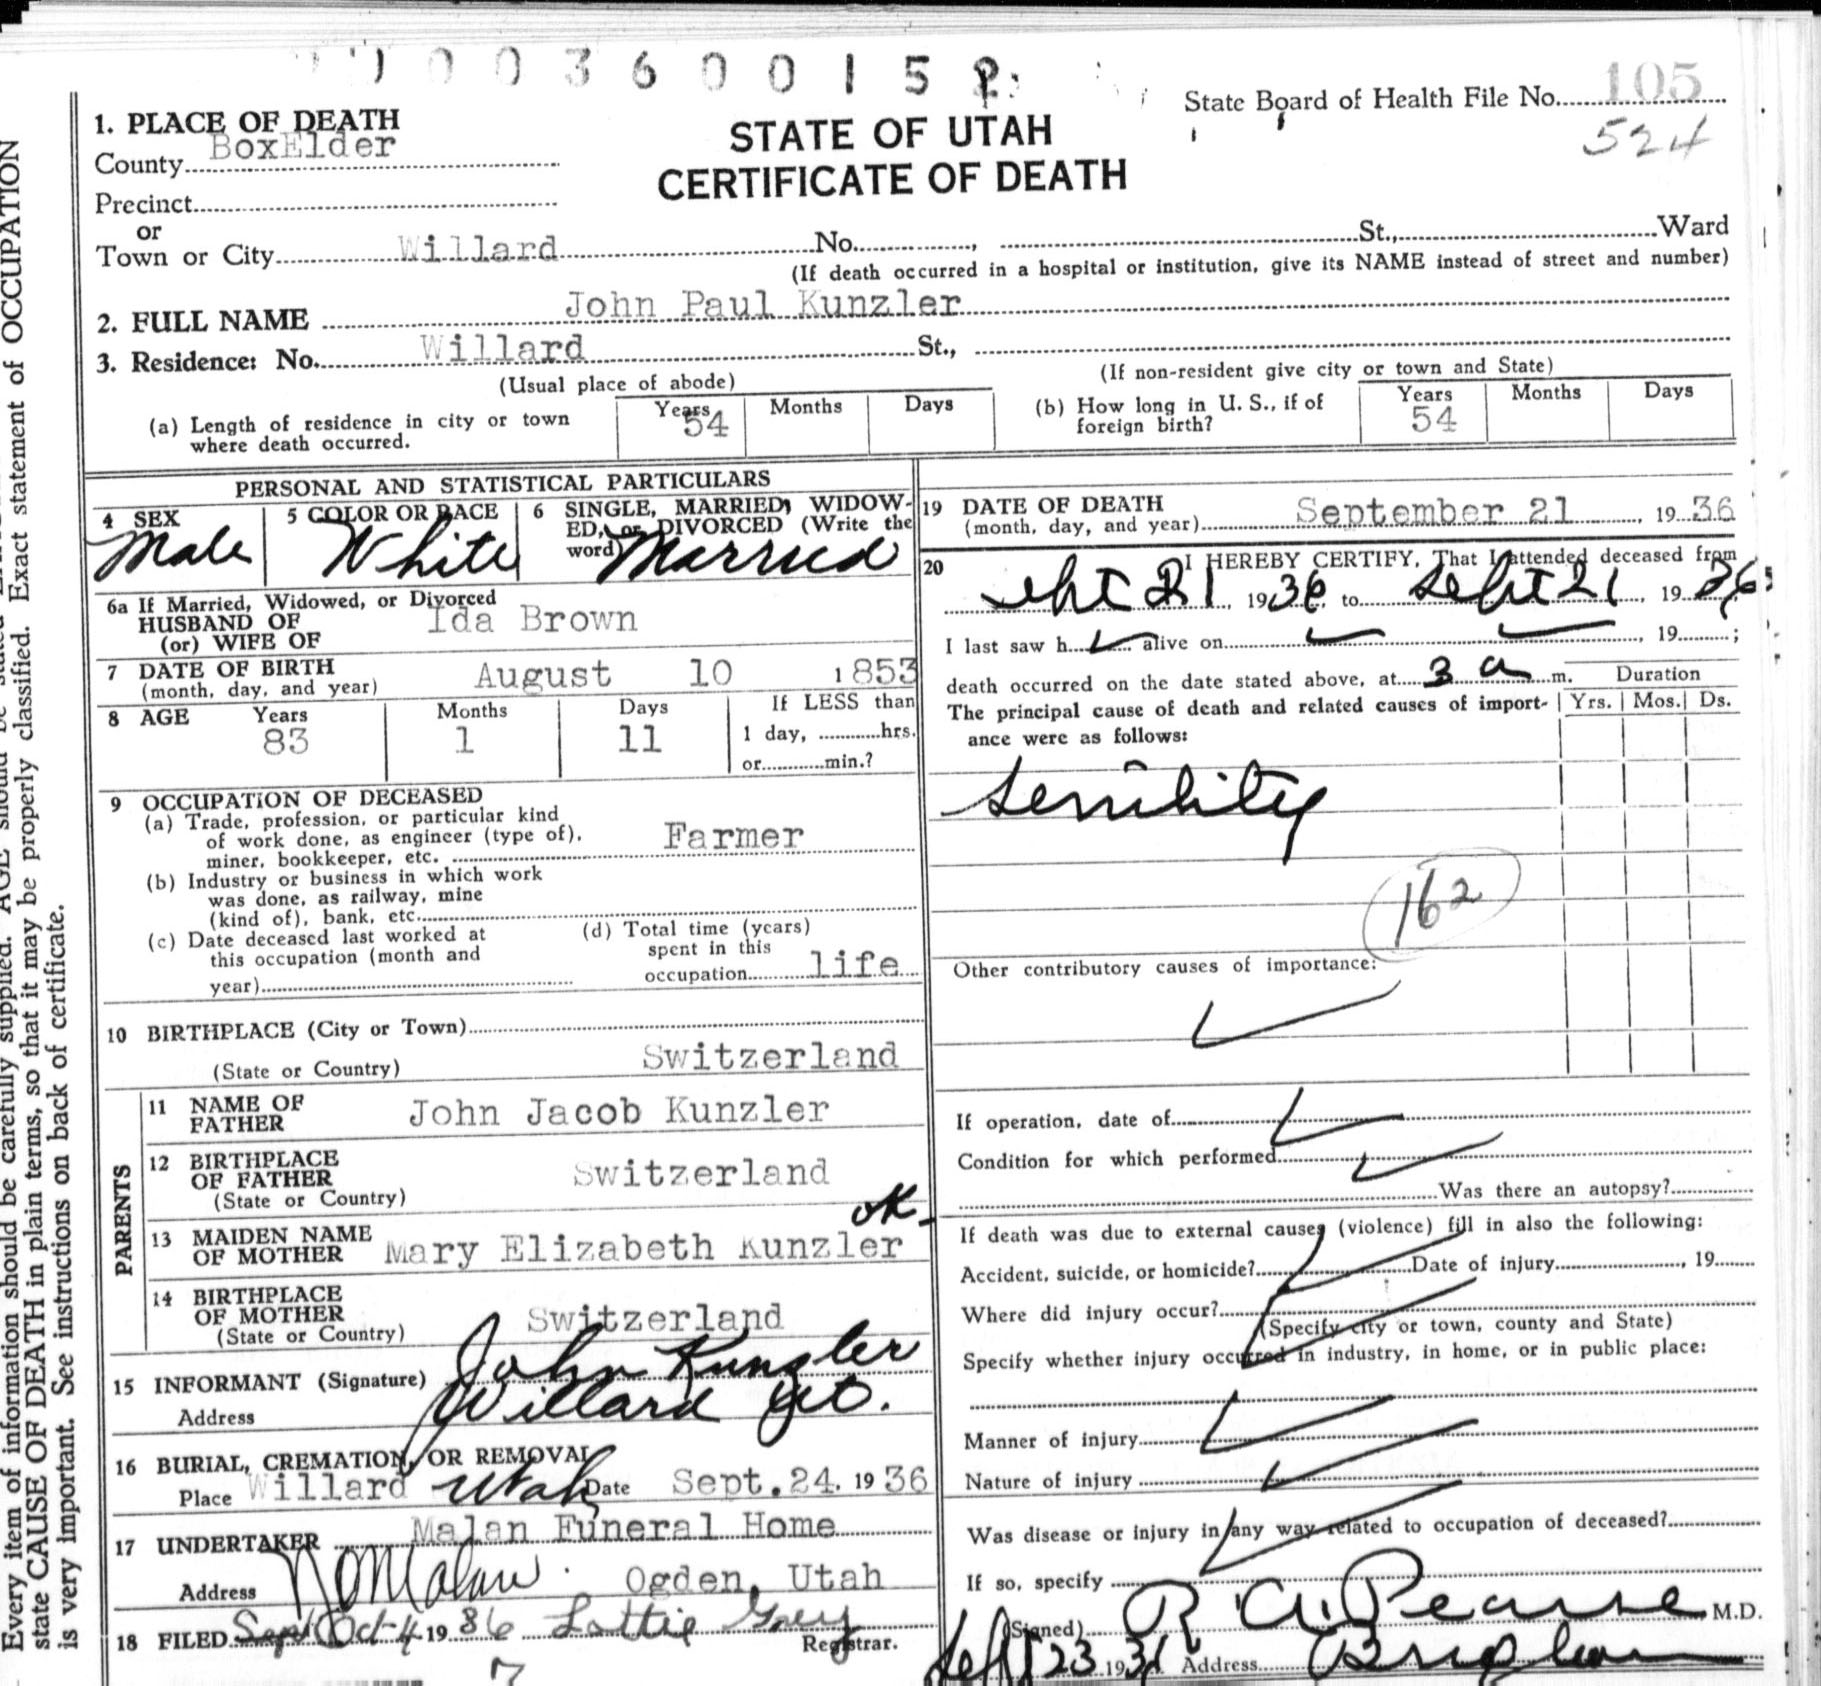 003600152
State Board of Health File No. 105
524
STATE OF UTAH
CERTIFICATE OF DEATH
1. PLACE OF DEATH
County BoxElder
Precinct
or
Town or City Willard No. , St., Ward
(If death occurred in a hospital or institution, give its NAME instead of street and number)
2. FULL NAME John Paul Kunzler
3. Residence: No. Willard St.,
(Usual place of abode) (If non-resident give city or town and State)
(a) Length of residence in city or town where death occurred. Years 54 Months Days
(b) How long in U. S., if of foreign birth? Years 54 Months Days
PERSONAL AND STATISTICAL PARTICULARS
4 SEX Male
5 COLOR OR RACE White
6 SINGLE, MARRIED, WIDOW-
ED, or DIVORCED (Write the
word) Married
6a If Married, Widowed, or Divorced
HUSBAND OF Ida Brown
(or) WIFE OF
7 DATE OF BIRTH August 10 1853
(month, day, and year)
8 AGE Years 83 Months 1 Days 11
If LESS than
1 day, hrs.
or min.?
9 OCCUPATION OF DECEASED
(a) Trade, profession, or particular kind
of work done, as engineer (type of),
miner, bookkeeper, etc. Farmer
(b) Industry or business in which work
was done, as railway, mine
(kind of), bank, etc.
(c) Date deceased last worked at
this occupation (month and
year)
(d) Total time (years)
spent in this
occupation life
10 BIRTHPLACE (City or Town)
(State or Country) Switzerland
PARENTS
11 NAME OF
FATHER John Jacob Kunzler
12 BIRTHPLACE
OF FATHER Switzerland
(State or Country)
ok-
13 MAIDEN NAME
OF MOTHER Mary Elizabeth Kunzler
14 BIRTHPLACE
OF MOTHER Switzerland
(State or Country)
15 INFORMANT (Signature) John Kunzler
Address Willard Ut.
16 BURIAL, CREMATION, OR REMOVAL
Place Willard Utah Date Sept. 24. 1936
17 UNDERTAKER Malan Funeral Home
Address Malan Ogden, Utah
18 FILED Sept Oct-4 1936 Lottie Grey
Registrar.
7
19 DATE OF DEATH
(month, day, and year) September 21, 1936
20 I HEREBY CERTIFY, That I attended deceased from
Sept 21, 1936, to Sept 21, 1936;
I last saw h alive on , 19 ;
death occurred on the date stated above, at 3 a m. Duration
The principal cause of death and related causes of import- Yrs. Mos. Ds.
ance were as follows:
Senility
162
Other contributory causes of importance:
If operation, date of
Condition for which performed
Was there an autopsy?
If death was due to external causes (violence) fill in also the following:
Accident, suicide, or homicide? Date of injury , 19
Where did injury occur?
(Specify city or town, county and State)
Specify whether injury occurred in industry, in home, or in public place:
Manner of injury
Nature of injury
Was disease or injury in any way related to occupation of deceased?
If so, specify
(Signed) R. A. Pearse M.D.
Sept 23 1936 Address Brigham
Every item of information should be carefully supplied. AGE should be stated
state CAUSE OF DEATH in plain terms, so that it may be properly classified. Exact statement of OCCUPATION
is very important. See instructions on back of certificate.